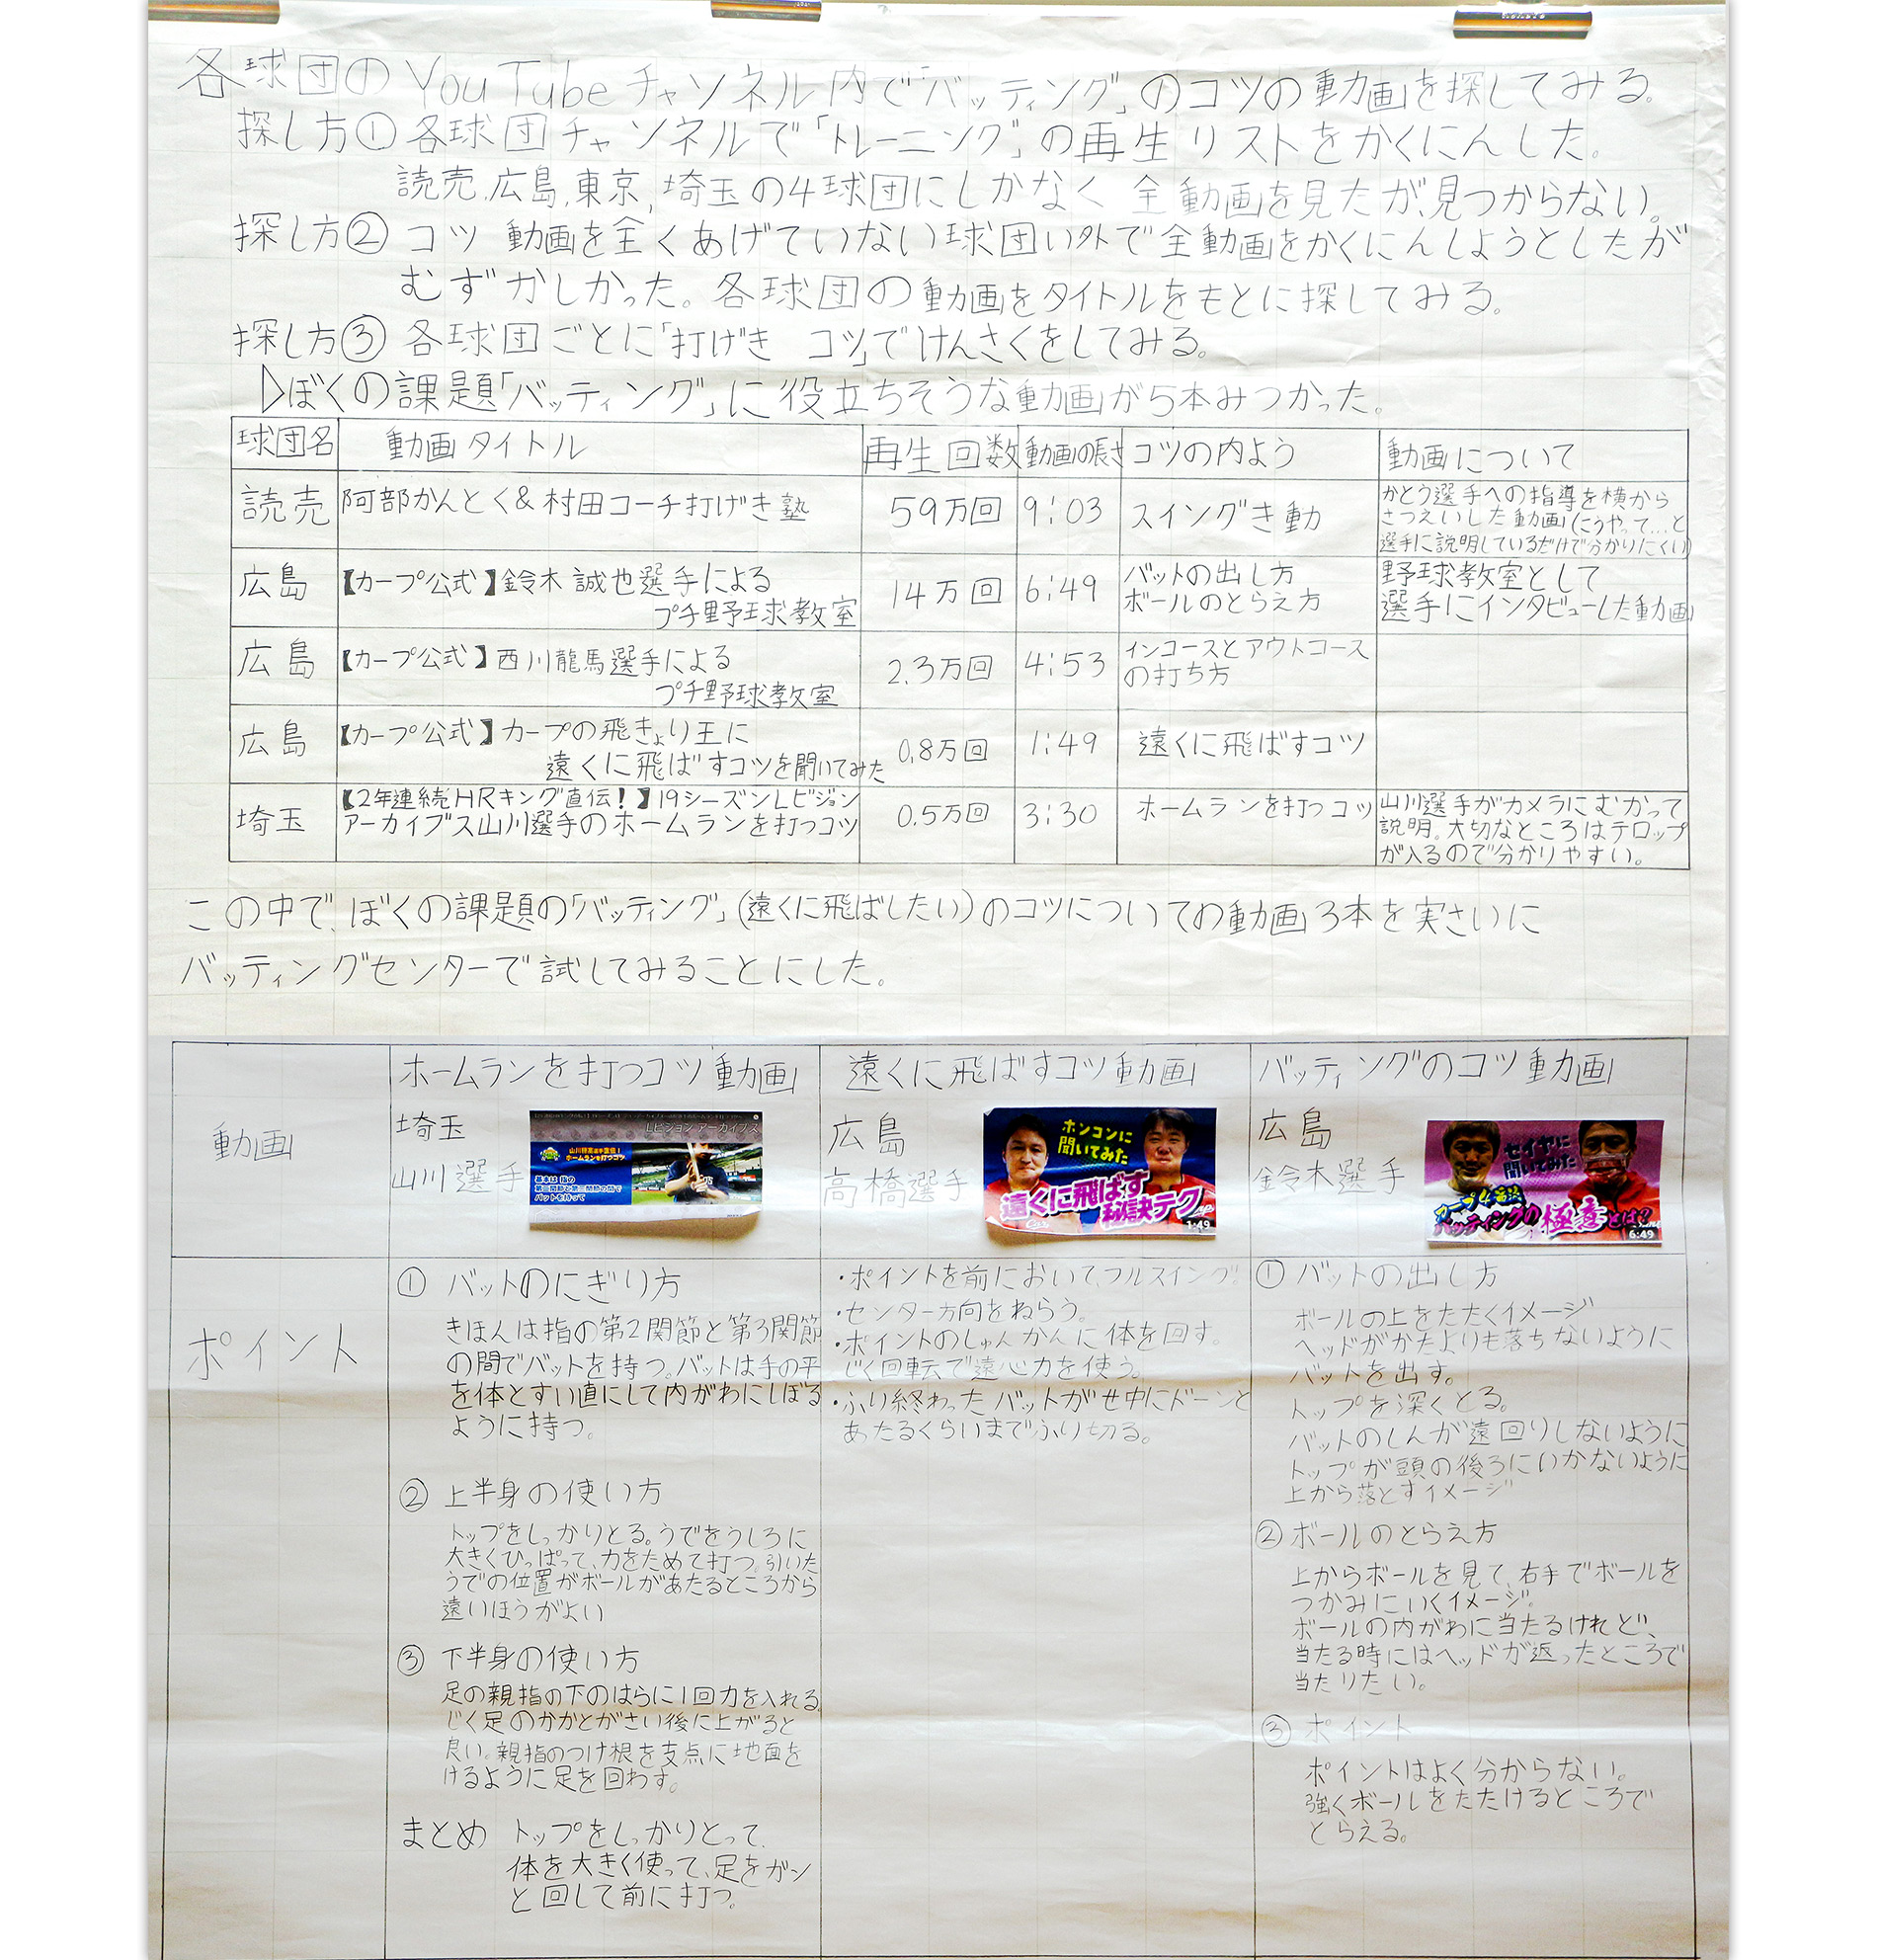 各球団のYouTubeチャンネル内で「バッティング」のコツの動画を探してみる。
探し方①各球団チャンネルで「トレーニング」の再生リストをかくにんした。
読売、広島、東京、埼玉の4球団にしかなく 全動画を見たが、見つからない。
探し方②コツ 動画を全くあげていない球団い外で全動画をかくにんしようとしたが
むずかしかった。各球団の動画をタイトルをもとに探してみる。
探し方③各球団ごとに「打げき コツ」でけんさくをしてみる。
▷ぼくの課題「バッティング」に役立ちそうな動画が5本みつかった。
球団名 動画タイトル 再生回数 動画の長さ コツの内よう 動画について
読売 阿部かんとく&村田コーチ打げき塾 59万回 9:03 スイングき動
かとう選手への指導を横から
さつえいした動画(こうやって…と
選手に説明しているだけで分かりにくい)
広島 【カープ公式】鈴木誠也選手による
プチ野球教室
14万回 6:49
バットの出し方
ボールのとらえ方
野球教室として
選手にインタビューした動画
広島 【カープ公式】西川龍馬選手による
プチ野球教室
2.3万回 4:53
インコースとアウトコース
の打ち方
広島 【カープ公式】カープの飛きょり王に
遠くに飛ばすコツを聞いてみた
0.8万回 1:49 遠くに飛ばすコツ
埼玉 【2年連続HRキング直伝!】19シーズンLビジョン
アーカイブス山川選手のホームランを打つコツ
0.5万回 3:30 ホームランを打つコツ
山川選手がカメラにむかって
説明。大切なところはテロップ
が入るので分かりやすい。
この中で、ぼくの課題の「バッティング」(遠くに飛ばしたい)のコツについての動画3本を実さいに
バッティングセンターで試してみることにした。
動画
ホームランを打つコツ動画
埼玉
山川選手
Lビジョン アーカイブス
山川穂高選手直伝!
ホームランを打つコツ
基本は 指の
第二関節と第三関節の間で
バットを持って
遠くに飛ばすコツ動画
広島
高橋選手
ホンコンに
聞いてみた
遠くに飛ばす
秘訣テク
1:49
バッティングのコツ動画
広島
鈴木選手
セイヤに
聞いてみた
カープ4番流
バッティングの極意とは?
6:49
ポイント
① バットのにぎり方
きほんは指の第2関節と第3関節
の間でバットを持つ。バットは手の平
を体とすい直にして内がわにしぼる
ように持つ。
② 上半身の使い方
トップをしっかりとる。うでをうしろに
大きくひっぱって、力をためて打つ。引いた
うでの位置がボールがあたるところから
遠いほうがよい
③ 下半身の使い方
足の親指の下のはらに1回力を入れる。
じく足のかかとがさい後に上がると
良い。親指のつけ根を支点に地面を
けるように足を回わす。
まとめ トップをしっかりとって、
体を大きく使って、足をガン
と回して前に打つ。
・ポイントを前において、フルスイング。
・センター方向をねらう。
・ポイントのしゅんかんに体を回す。
じく回転で遠心力を使う。
・ふり終わったバットがせ中にドーンと
あたるくらいまでふり切る。
① バットの出し方
ボールの上をたたくイメージ
ヘッドがかたよりも落ちないように
バットを出す。
トップを深くとる。
バットのしんが遠回りしないように
トップが頭の後ろにいかないように
上から落とすイメージ
② ボールのとらえ方
上からボールを見て、右手でボールを
つかみにいくイメージ。
ボールの内がわに当たるけれど、
当たる時にはヘッドが返ったところで
当たりたい。
③ ポイント
ポイントはよく分からない。
強くボールをたたけるところで
とらえる。